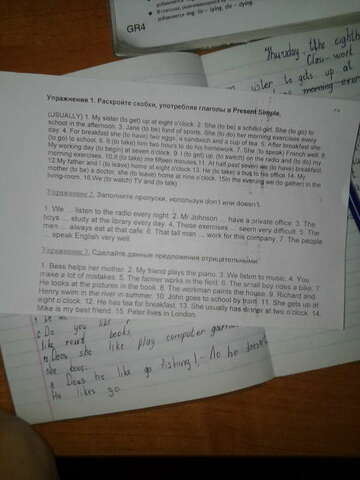 GR4
Thursday, the eighth
Class-work
Упражнение 1. Раскройте скобки, употребляя глаголы в Present Simple.
(USUALLY) 1. My sister (to get) up at eight o'clock. 2. She (to be) a school-girl. She (to go) to
school in the afternoon. 3. Jane (to be) fond of sports. She (to do) her morning exercises every
day. 4. For breakfast she (to have) two eggs, a sandwich and a cup of tea. 5. After breakfast she
(to go) to school. 6. It (to take) him two hours to do his homework. 7. She (to speak) French well. 8.
My working day (to begin) at seven o'clock. 9. I (to get) up, (to switch) on the radio and (to do) my
morning exercises. 10. It (to take) me fifteen minutes. 11. At half past seven we (to have) breakfast.
12. My father and I (to leave) home at eight o'clock. 13. He (to take) a bus to his office. 14. My
mother (to be) a doctor, she (to leave) home at nine o'clock. 15. In the evening we (to gather) in the
living-room. 16. We (to watch) TV and (to talk)
Упражнение 2. Заполните пропуски, используя don't или doesn't.
1. We ... listen to the radio every night. 2. Mr Johnson ... have a private office. 3. The
boys ... study at the library every day. 4. These exercises ... seem very difficult. 5. The
men ... always eat at that cafe. 6. That tall man ... work for this company. 7. The people
... speak English very well.
Упражнение 3. Сделайте данные предложения отрицательными.
1. Bess helps her mother. 2. My friend plays the piano. 3. We listen to music. 4. You
make a lot of mistakes. 5. The farmer works in the field. 6. The small boy rides a bike. 7.
He looks at the pictures in the book. 8. The workman paints the house. 9. Richard and
Henry swim in the river in summer. 10. John goes to school by tram. 11. She gets up at
eight o'clock. 12. He has tea for breakfast. 13. She usually has dinner at two o'clock. 14.
Mike is my best friend. 15. Peter lives in London.
like read books
Does she like play computer
Does he like go fishing? - No he doesn't
He likes go